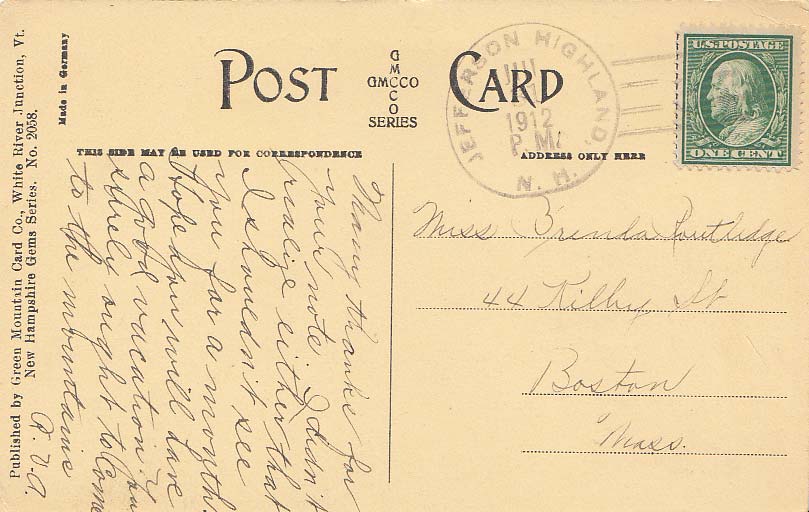 Published by Green Mountain Card Co., White River Junction, Vt.
New Hampshire Gems Series. No. 2058.
Made in Germany
POST CARD
GMCCO
GMCCO
SERIES
THIS SIDE MAY BE USED FOR CORRESPONDENCE
ADDRESS ONLY HERE
JEFFERSON HIGHLAND,
1912
P.M.
N. H.
U.S. POSTAGE
ONE CENT
Many thanks for
your note. I didn't
realize either that
I shouldn't see
you for a month.
Hope you will have
a good vacation. You
surely ought to come
to the mountains
R. V. A.
Miss Brenda Routlidge
44 Kilby St
Boston
Mass.